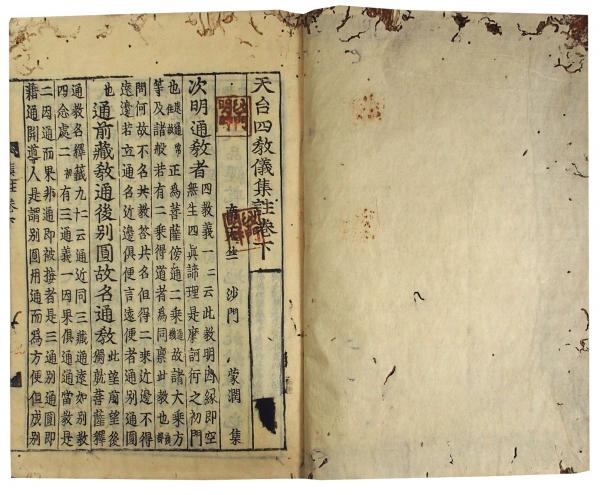 天台四教儀集註卷下
南天竺 沙門 蒙潤 集
次明通教者 四教義一二云此教明因縁即空
無生四真諦理是摩訶衍之初門
也 正為菩薩傍通二乗 故諸大乗方
等及諸般若有二乗得道者為同禀此教也
問何故不名共教答共名但得二乗近邊不得
遠邊若立通名近遠俱便言遠便者通別通圓
也 通前藏教通後別圓故名通教 此望前望後
獨就菩薩釋
通教名釋籤九十云通近同三藏通遠如別教
四念處二 有三通義一因果俱通通當教是
二因通而果非通即被接者是三通別通圓即
藉通開導人是謂別圓用通而為方便但成別